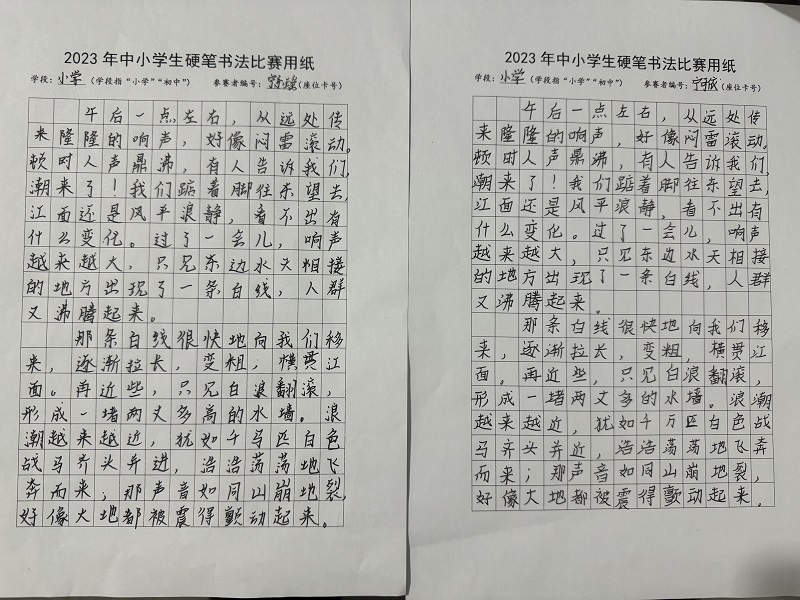 2023 年中小学生硬笔书法比赛用纸
学段：小学（学段指“小学”“初中”） 参赛者编号：（座位卡号）
午后一点左右，从远处传
来隆隆的响声，好像闷雷滚动。
顿时人声鼎沸，有人告诉我们，
潮来了！我们踮着脚往东望去，
江面还是风平浪静，看不出有
什么变化。过了一会儿，响声
越来越大，只见东边水天相接
的地方出现了一条白线，人群
又沸腾起来。
那条白线很快地向我们移
来，逐渐拉长，变粗，横贯江
面。再近些，只见白浪翻滚，
形成一堵两丈多高的水墙。浪
潮越来越近，犹如千马匹白色
战马齐头并进，浩浩荡荡地飞
奔而来，那声音如同山崩地裂，
好像大地都被震得颤动起来。
2023 年中小学生硬笔书法比赛用纸
学段：小学（学段指“小学”“初中”） 参赛者编号：（座位卡号）
午后一点左右，从远处传
来隆隆的响声，好像闷雷滚动。
顿时人声鼎沸，有人告诉我们，
潮来了！我们踮着脚往东望去，
江面还是风平浪静，看不出有
什么变化。过了一会儿，响声
越来越大，只见东边水天相接
的地方出现了一条白线，人群
又沸腾起来。
那条白线很快地向我们移
来，逐渐拉长，变粗，横贯江
面。再近些，只见白浪翻滚，
形成一堵两丈多的水墙。浪潮
越来越近，犹如千万匹白色战
马齐头并近，浩浩荡荡地飞奔
而来；那声音如同山崩地裂，
好像大地都被震得颤动起来。